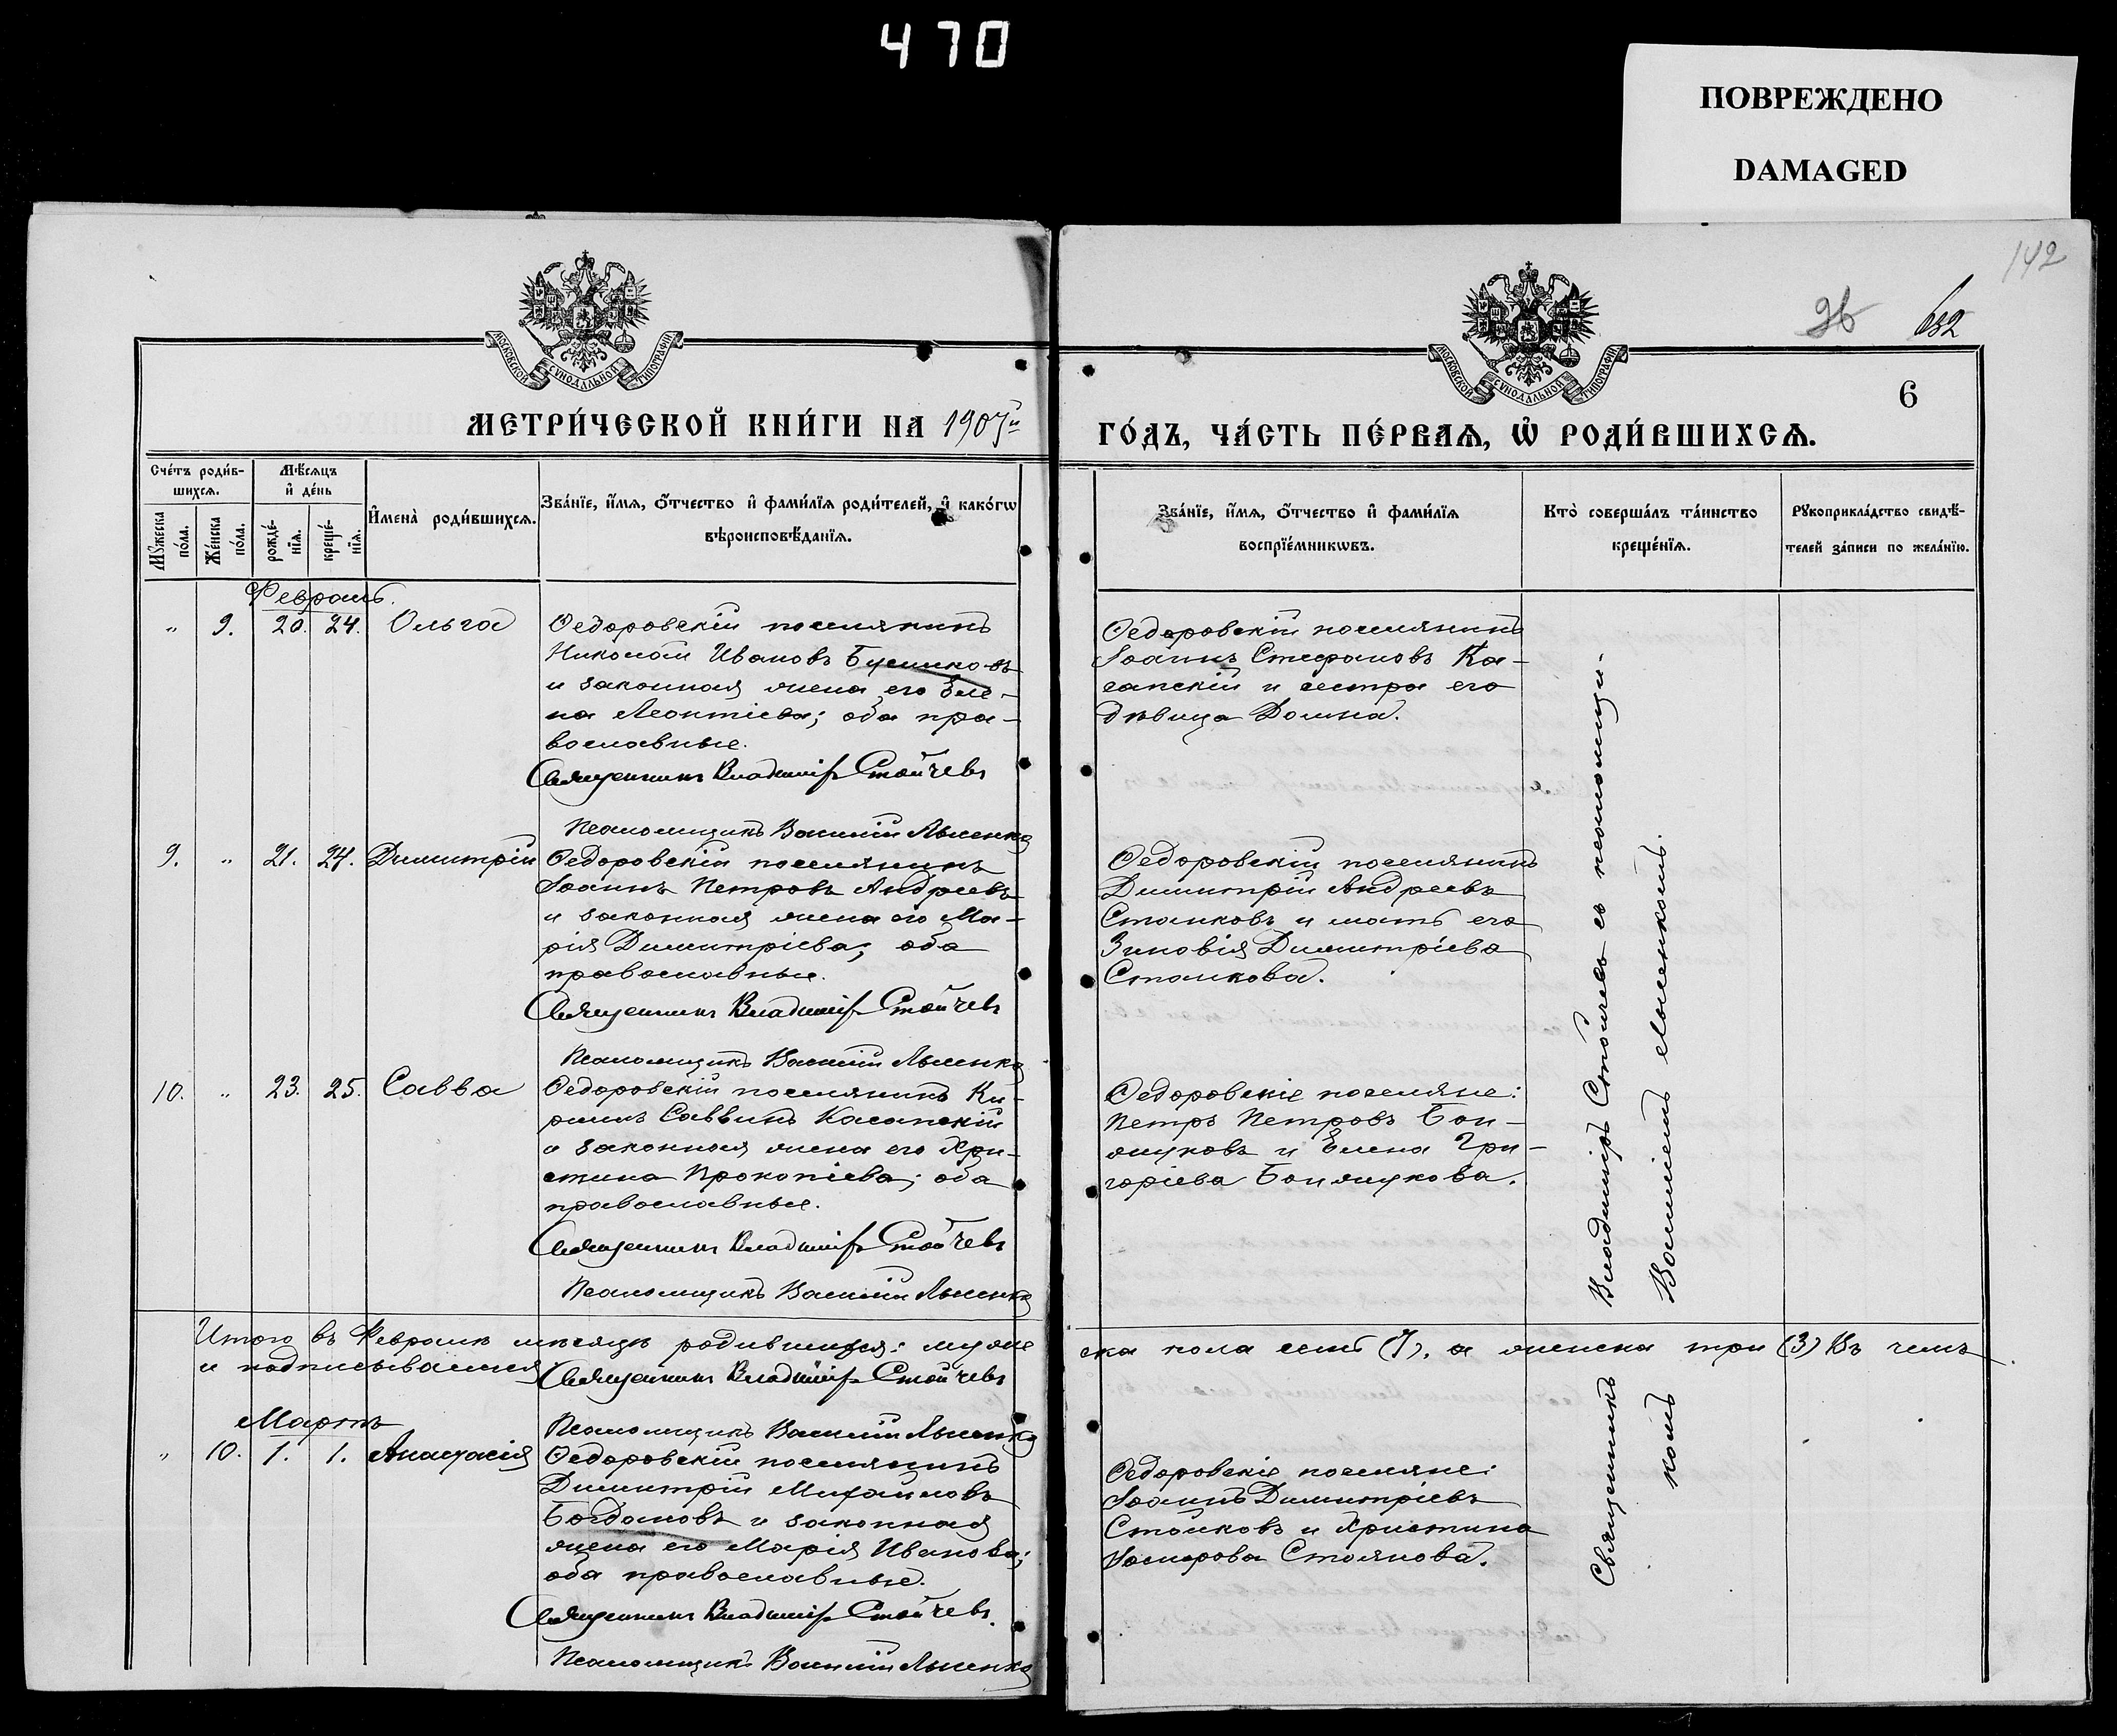 470
ПОВРЕЖДЕНО
DAMAGED
142
632
МОСКОВСКОЙ СѴНОДАЛЬНОЙ ТИПОГРАФІИ
МОСКОВСКОЙ СѴНОДАЛЬНОЙ ТИПОГРАФІИ
6
МЕТРИ́ЧЕСКОЙ КНИ́ГИ НА 1907й
ГО́ДЪ, ЧА́СТЬ ПЕ́РВАѦ, Ѡ҆ РОДИ́ВШИХСѦ.
Сче́тъ роди́в-
шихсѧ.
Мꙋ́жеска по́ла.
Же́нска по́ла.
Мѣ́сѧцъ
и҆ де́нь
рожде́-
нїѧ.
креще́-
нїѧ.
И҆мена̀ роди́вшихсѧ.
Зва́нїе, и҆́мѧ, ѻ҆́тчество и҆ фами́лїѧ роди́телей, и҆ како́гѡ
вѣроисповѣ́данїѧ.
Зва́нїе, и҆́мѧ, ѻ҆́тчество и҆ фами́лїѧ
воспрїе́мникѡвъ.
Кто̀ соверша́лъ та́инство
креще́нїѧ.
Рꙋкоприкла́дство свидѣ́-
телей за́писи по жела́нїю.
Февраль.
" 9. 20. 24. Ольга
Ѳедоровскій поселянинъ
Николай Ивановъ
и законная жена его Еле-
на Леонтіева; оба пра-
вославные.
Священникъ Владиміръ Стойчевъ
Псаломщикъ Василій Лысенко
Ѳедоровскій поселянинъ
Іоаннъ Стефановъ Ка-
сапскій и сестра его
дѣвица Домна.
9. " 21. 24. Димитрій
Ѳедоровскій поселянинъ
Іоаннъ Петровъ Андреевъ
и законная жена его Ма-
рія Димитріева; оба
православные.
Священникъ Владиміръ Стойчевъ
Псаломщикъ Василій Лысенко
Ѳедоровскій поселянинъ
Димитрій Андреевъ
Станковъ и мать его
Зиновія Димитріева
Станкова.
10. " 23. 25. Савва
Ѳедоровскій поселянинъ Ки-
риллъ Саввинъ Касапскій
и законная жена его Хри-
стина Прокопіева; оба
православные.
Священникъ Владиміръ Стойчевъ
Псаломщикъ Василій Лысенко
Ѳедоровскіе поселяне:
Петръ Петровъ Бон-
жуковъ и Елена Гри-
горіева Бонжукова.
Итого въ Февралѣ мѣсяцѣ родившихся: муже
ска пола семь (7), а женска три (3) Въ чемъ
и подписываемся
Священникъ Владиміръ Стойчевъ
Псаломщикъ Василій Лысенко
Мартъ
" 10. 1. 1. Анастасія
Ѳедоровскій поселянинъ
Димитрій Михайловъ
Богдановъ и законная
жена его Марія Иванова;
оба православные.
Священникъ Владиміръ Стойчевъ.
Псаломщикъ Василій Лысенко
Ѳедоровскіе поселяне:
Іоаннъ Димитріевъ
Стойковъ и Христина
Стоянова.
Священникъ Владиміръ Стойчевъ съ псаломщи-
комъ Василіемъ Лысенкомъ.